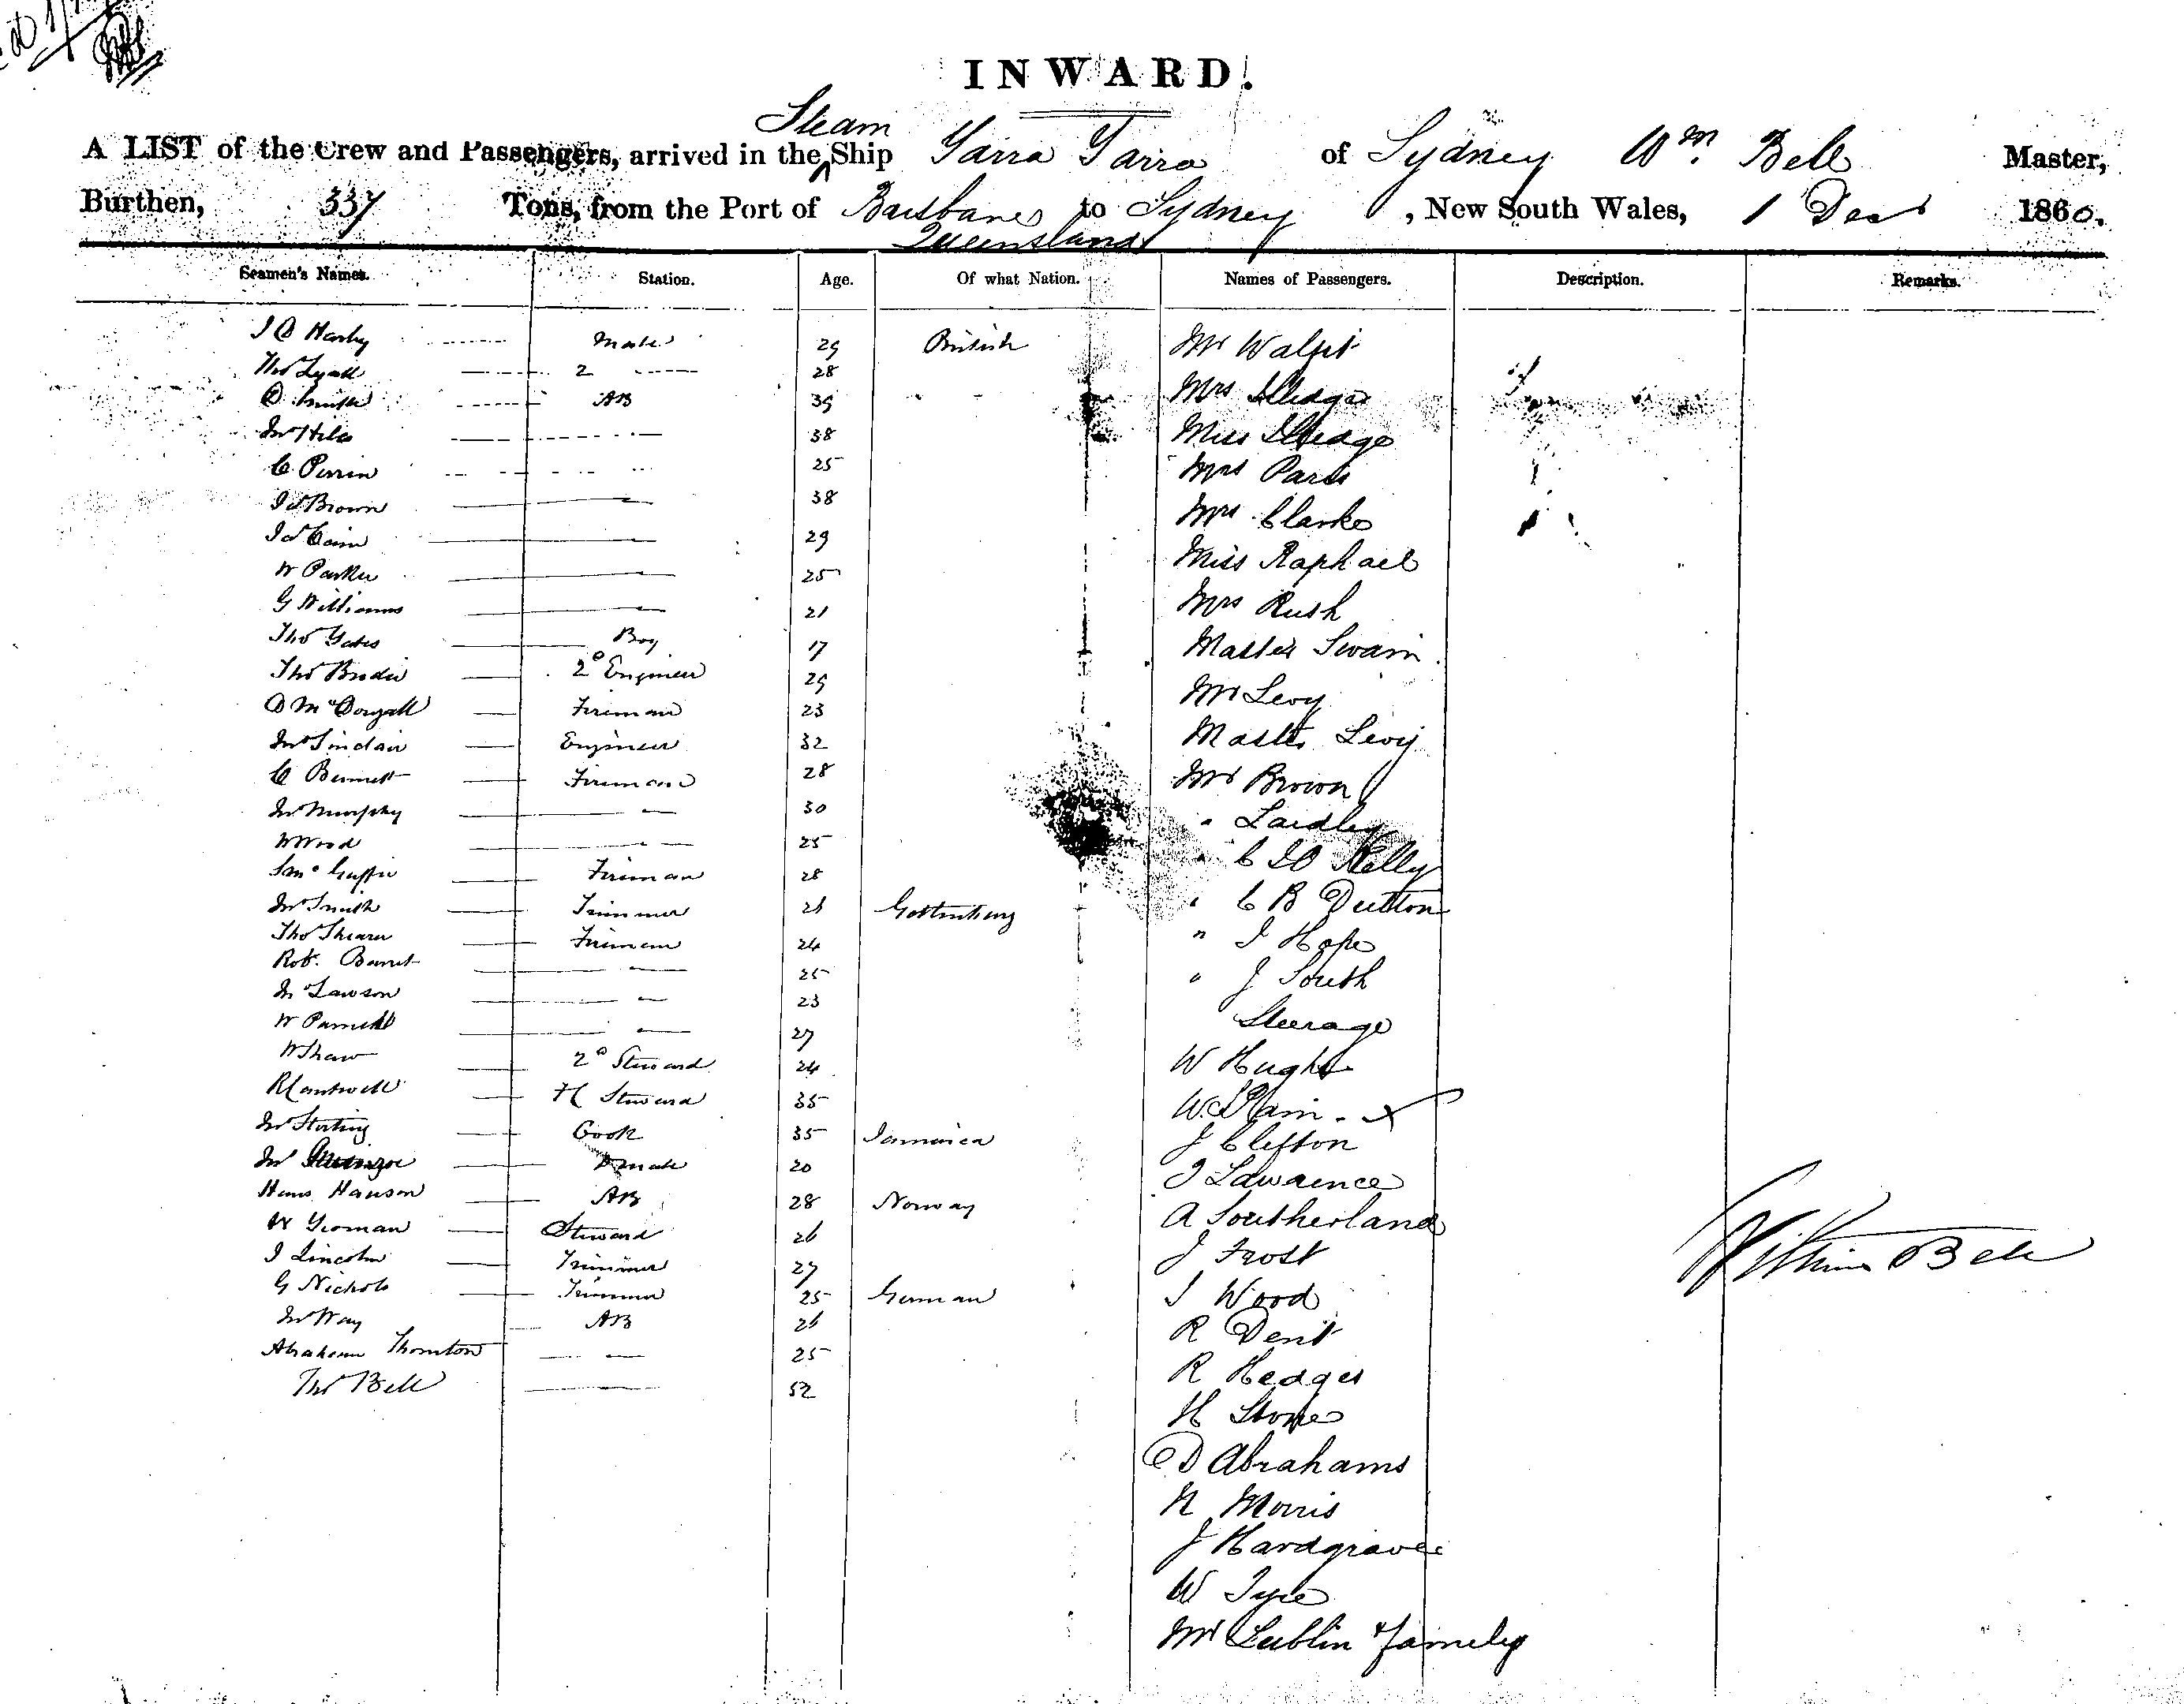 INWARD.
A LIST of the Crew and Passengers, arrived in the Steam Ship Yarra Yarra of Sydney Wm. Bell Master,
Burthen, 337 Tons, from the Port of Brisbane Queensland to Sydney, New South Wales, 1 Dec 1860.
Seamen's Names. Station. Age. Of what Nation. Names of Passengers. Description. Remarks.
Mate 29 British Mr
Thos Lyall 2 28 Mrs
AB 39 Miss
38 Mrs
C Perrin 25 Mrs Clarke
Jas Brown 38 Miss Raphael
Jas Cain 29 Mrs Rush
W Parker 25 Master Swain
G Williams 21 Mr Levy
Thos Yates Boy 17 Master Levy
Thos 2d Engineer 29 Mr Brown
D McDougall Fireman 23 " Laidley
Jno Sinclair Engineer 32 " Kelly
C Bennett Fireman 28 " C B Dutton
Jno Murphy 30 " J Hope
W Wood 25 " J South
Fireman 28 Steerage
Jno Smith Trimmer 26 Gottenburg W Hught
Thos Shearer Fireman 24 W.
Robt. Barret 25 J Clifton
Jn Lawson 23 J Lawrence
W 27 A Southerland
W Shaw 2d Steward 24 J Frost
R Cantwell H Steward 35 J Wood
Jno Sterling Cook 35 Jamaica R Dent
Jno 20 R Hedges
Hans Hanson AB 28 Norway H Stone
W Yeoman Steward 26 D Abrahams
J Lincoln Trimmer 27 N Morris
G Nichols Trimmer 25 German J Hardgrave
Jno Way AB 26 W Tyre
Abraham Thornton 25 Mr Lublin & family
Thos Bell 52
William Bell